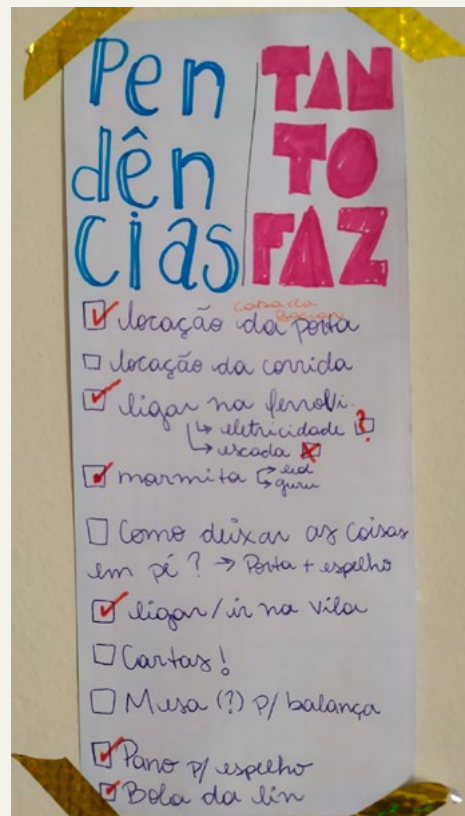 Pen
dên
cias
TAN
TO
FAZ
casa da
locação da porta
locação da corrida
ligar na ferrovi.
↳ eletricidade ?
↳ escada
marmita
guru
Como deixar as coisas
em pé? → Porta + espelho
ligar/ir na vila
Cartas!
Mesa (?) p/ balança
Pano p/ espelho
Bola da lin